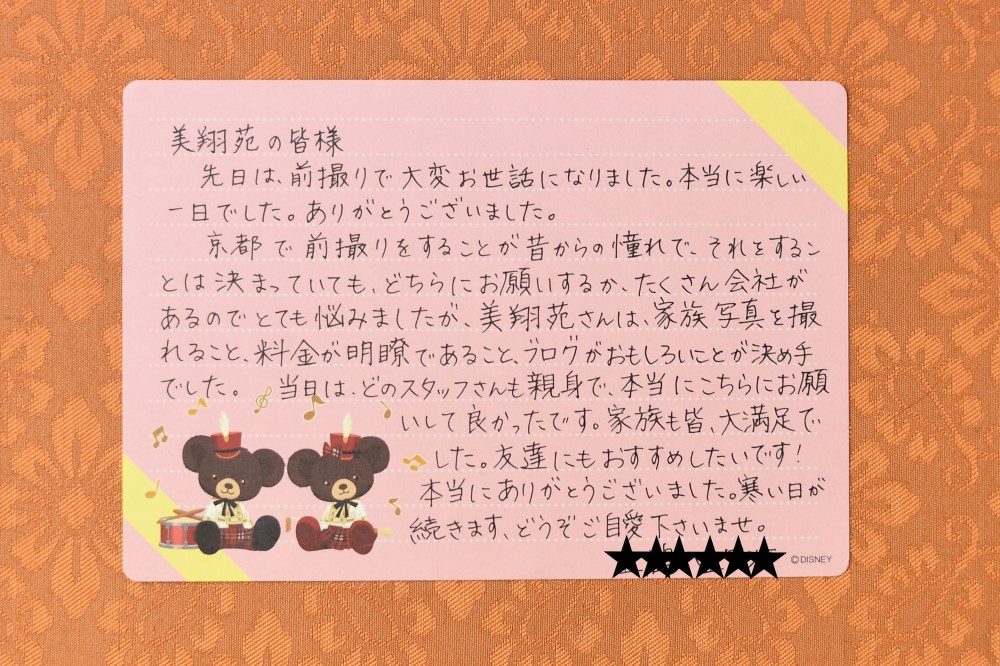 美翔苑の皆様
先日は、前撮りで大変お世話になりました。本当に楽しい
一日でした。ありがとうございました。
京都で前撮りをすることが昔からの憧れで、それをするこ
とは決まっていても、どちらにお願いするか、たくさん会社が
あるのでとても悩みましたが、美翔苑さんは、家族写真を撮
れること、料金が明瞭であること、ブログがおもしろいことが決め手
でした。 当日は、どのスタッフさんも親身で、本当にこちらにお願
いして良かったです。家族も皆、大満足で
した。友達にもおすすめしたいです!
本当にありがとうございました。寒い日が
続きます、どうぞご自愛下さいませ。
©DISNEY